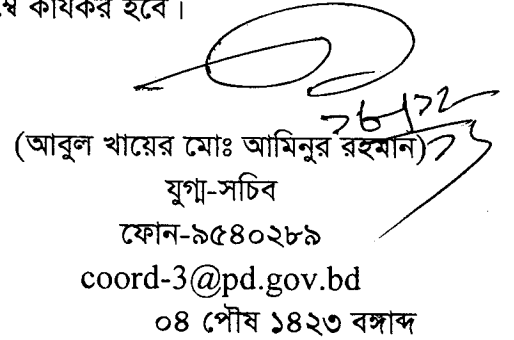 কার্যকর হবে।
১৮/১২/১৬
(আবুল খায়ের মোঃ আমিনুর রহমান)
যুগ্ম-সচিব
ফোন-৯৫৪০২৮৯
coord-3@pd.gov.bd
০৪ পৌষ ১৪২৩ বঙ্গাব্দ